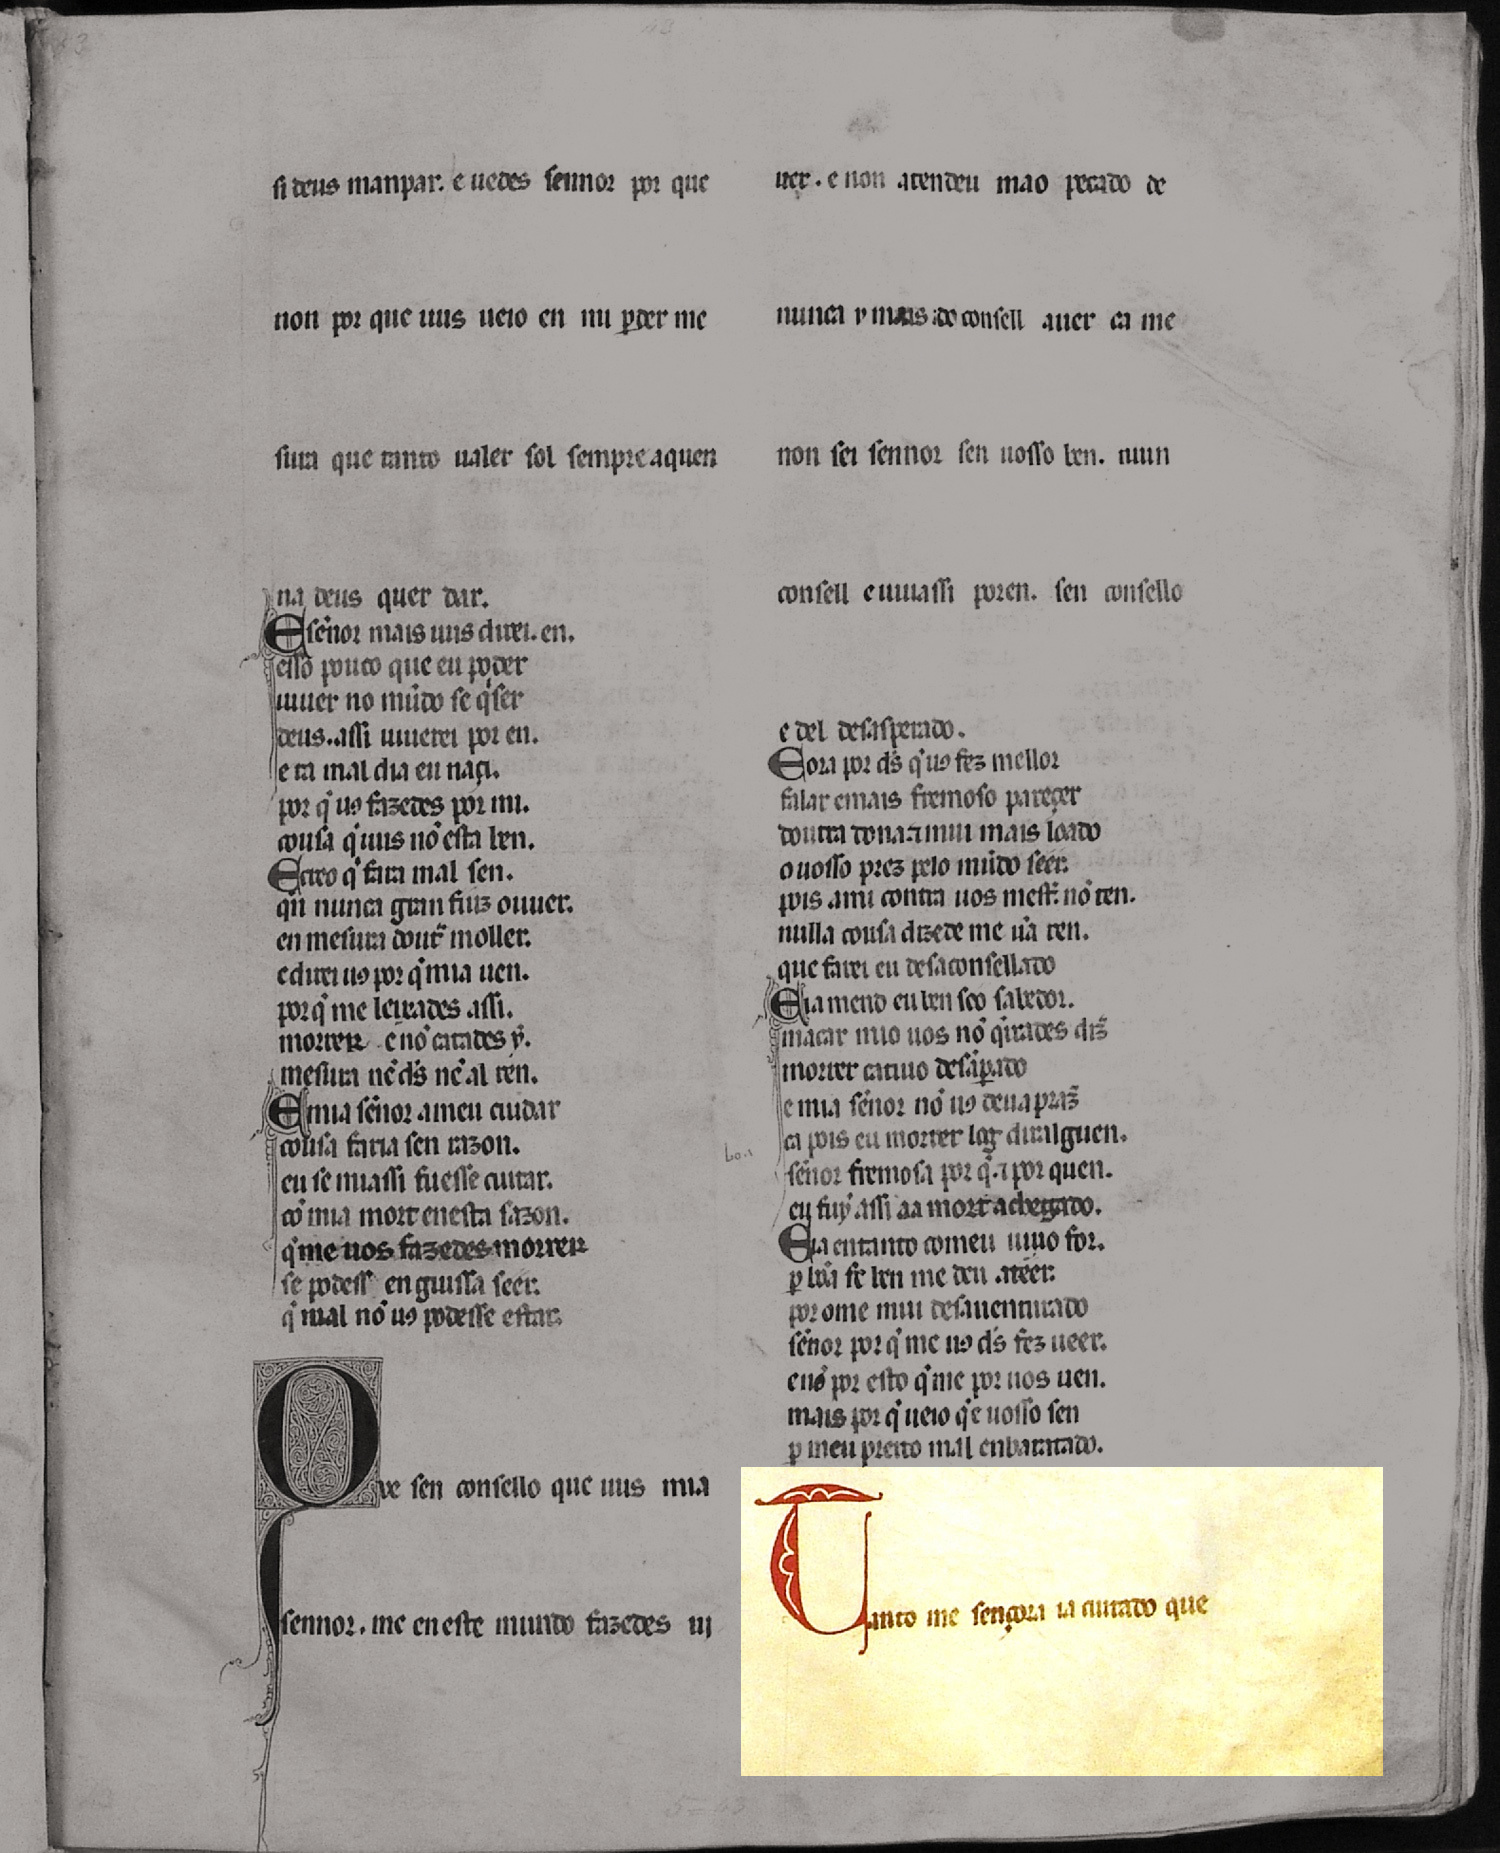 si deus manpar. e uedes sennor por que
non por que uus ueio en mi ꝑder me
sura que tanto ualer sol sempre aquen
na deus quer dar.
E sẽnor mais uus direi. en.
esso pouco que eu poder
uiuer no mũdo se q̇ser
deus. assi uiuerei por en.
e ta mal dia eu naçi.
por q̃ uꝯ fazedes por mi.
cousa q̃ uus nõ esta ben.
E creo q̃ fara mal sen.
qũ nunca gran fiuz ouuer.
en mesura dout̃ moller.
e direi uꝯ por q̃ mia uen.
por q̃ me leixades assi.
morrer e nõ catades ẏ.
mesura nẽ ds̃ nẽ al ren.
E mia sẽnor a meu cuidar
cousa faria sen razon.
eu se miassi fuesse cuitar.
cõ mia mort en esta sazon.
q̃ me uos fazedes morrer
se podess en guissa seer.
q̃ mal nõ uꝯ podesse estar.
Que sen consello que uus mia
sennor. me en este mundo fazedes ui
uer. e non atendeu mao pecado de
nunca y mais do consell auer ca me
non sei sennor sen uosso ben. niun
consell e uiuassi poren. sen consello
e del desasperado.
E ora por ds̃ q̃ uꝯ fez mellor
falar e mais fremoso pareçer
doutra dona. ⁊ mui mais loado
o uosso prez pelo mũdo seer.
pois a mi contra uos mest̃. nõ ten.
nulla cousa dizede me ũa ren.
que farei eu desaconsellado
E ia mend eu ben sõo sabedor.
macar mio uos nõ q̇rades diz̃
morrer catiuo desãꝑado
e mia sẽnor nõ uꝯ deu a praz̃
ca pois eu morrer log dirãlguen.
sẽnor fremosa por q̃. ⁊ por quen.
eu fuẏ assi aa mort achegado.
E ia en tanto comeu uiuo for.
ꝑ bõa fe ben me deu a tẽer.
por ome mui desauenturado
sẽnor por q̃ me uꝯ ds̃ fez ueer.
e nõ por esto q̃ me por uos uen.
mais por q̃ ueio q̃ e uosso sen
ꝑ meu preito mal enbaratado.
Tanto me senço ra ia cuitado que